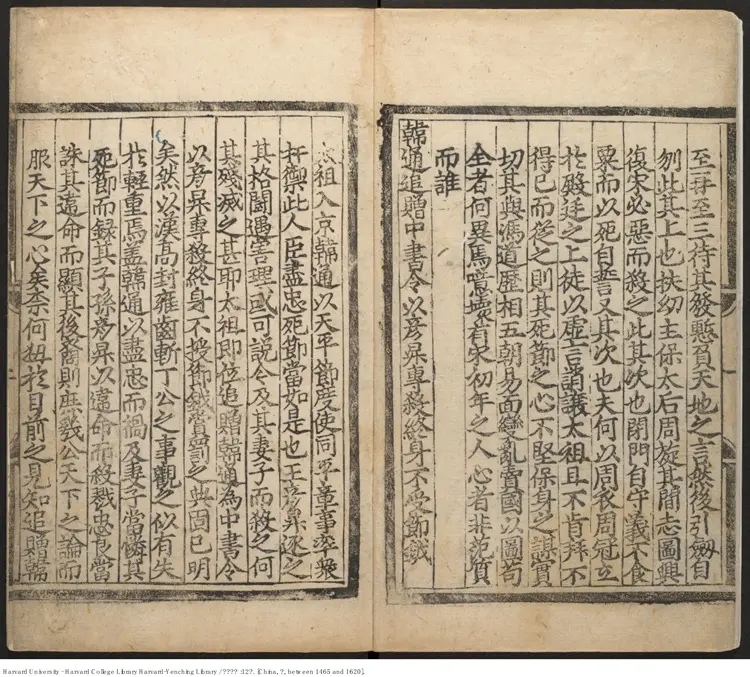 至再至三待其發懸負天地之言然後引劔自
刎此其上也扶幼主保太后周旋其間志圖興
復宋必惡而殺之此其次也閉門自守義不食
粟而以死自誓又其次也夫何以周衣周冠立
於殿廷之上徒以虛言誚讓太祖且不肯拜不
得已而從之則其死節之心不堅保身之謀實
切其與馮道歷相五朝易面變亂賣國以圖苟
全者何異焉噫壞有宋初年之人心者非范質
而誰
韓通追贈中書令以彥昇專殺終身不受節鉞
太祖入京韓通以天平節度使同平章事率衆
扞禦此人臣盡忠死節當如是也王彥昇逐之
其格鬬遇害理或可說今及其妻子而殺之何
其殘滅之甚耶太祖即位追贈韓通為中書令
以彥昇專殺終身不授節鉞賞罰之典固已明
矣然以漢高封雍齒斬丁公之事觀之似有失
於輕重焉盖韓通以盡忠而禍及妻子當憐其
死節而録其子孫彥昇以違命而殺戮忠良當
誅其違命而顯其後裔則庶幾公天下之論而
服天下之心矣柰何拘於目前之見知追贈韓
Harvard University - Harvard College Library Harvard-Yenching Library / ???? :12?. [China, ?, between 1465 and 1620].